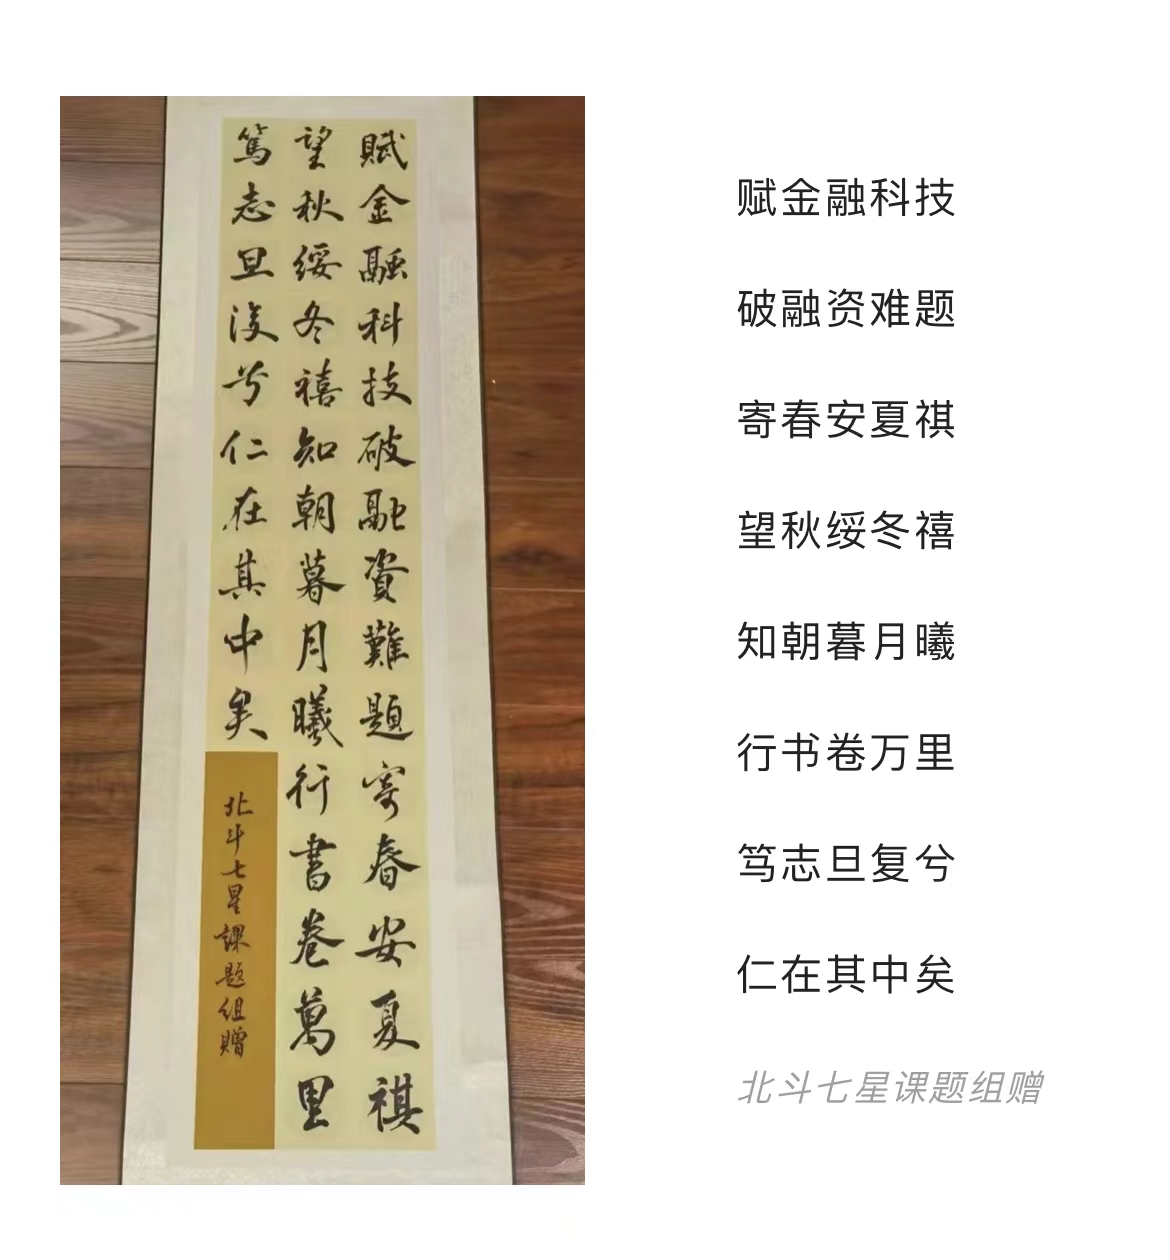 賦金融科技破融資難題寄春安夏祺
望秋綏冬禧知朝暮月曦行書卷萬里
篤志旦復兮仁在其中矣
北斗七星課题组贈
赋金融科技
破融资难题
寄春安夏祺
望秋绥冬禧
知朝暮月曦
行书卷万里
笃志旦复兮
仁在其中矣
北斗七星课题组赠